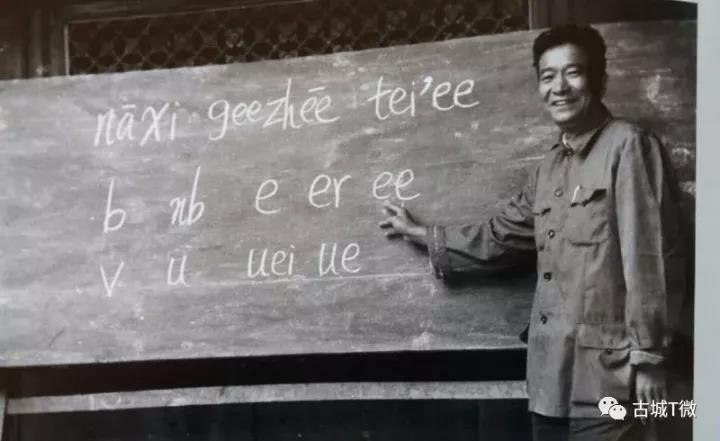 nāxi geezhēe tei'ee
b nb e er ee
v ü uei ue
古城T微